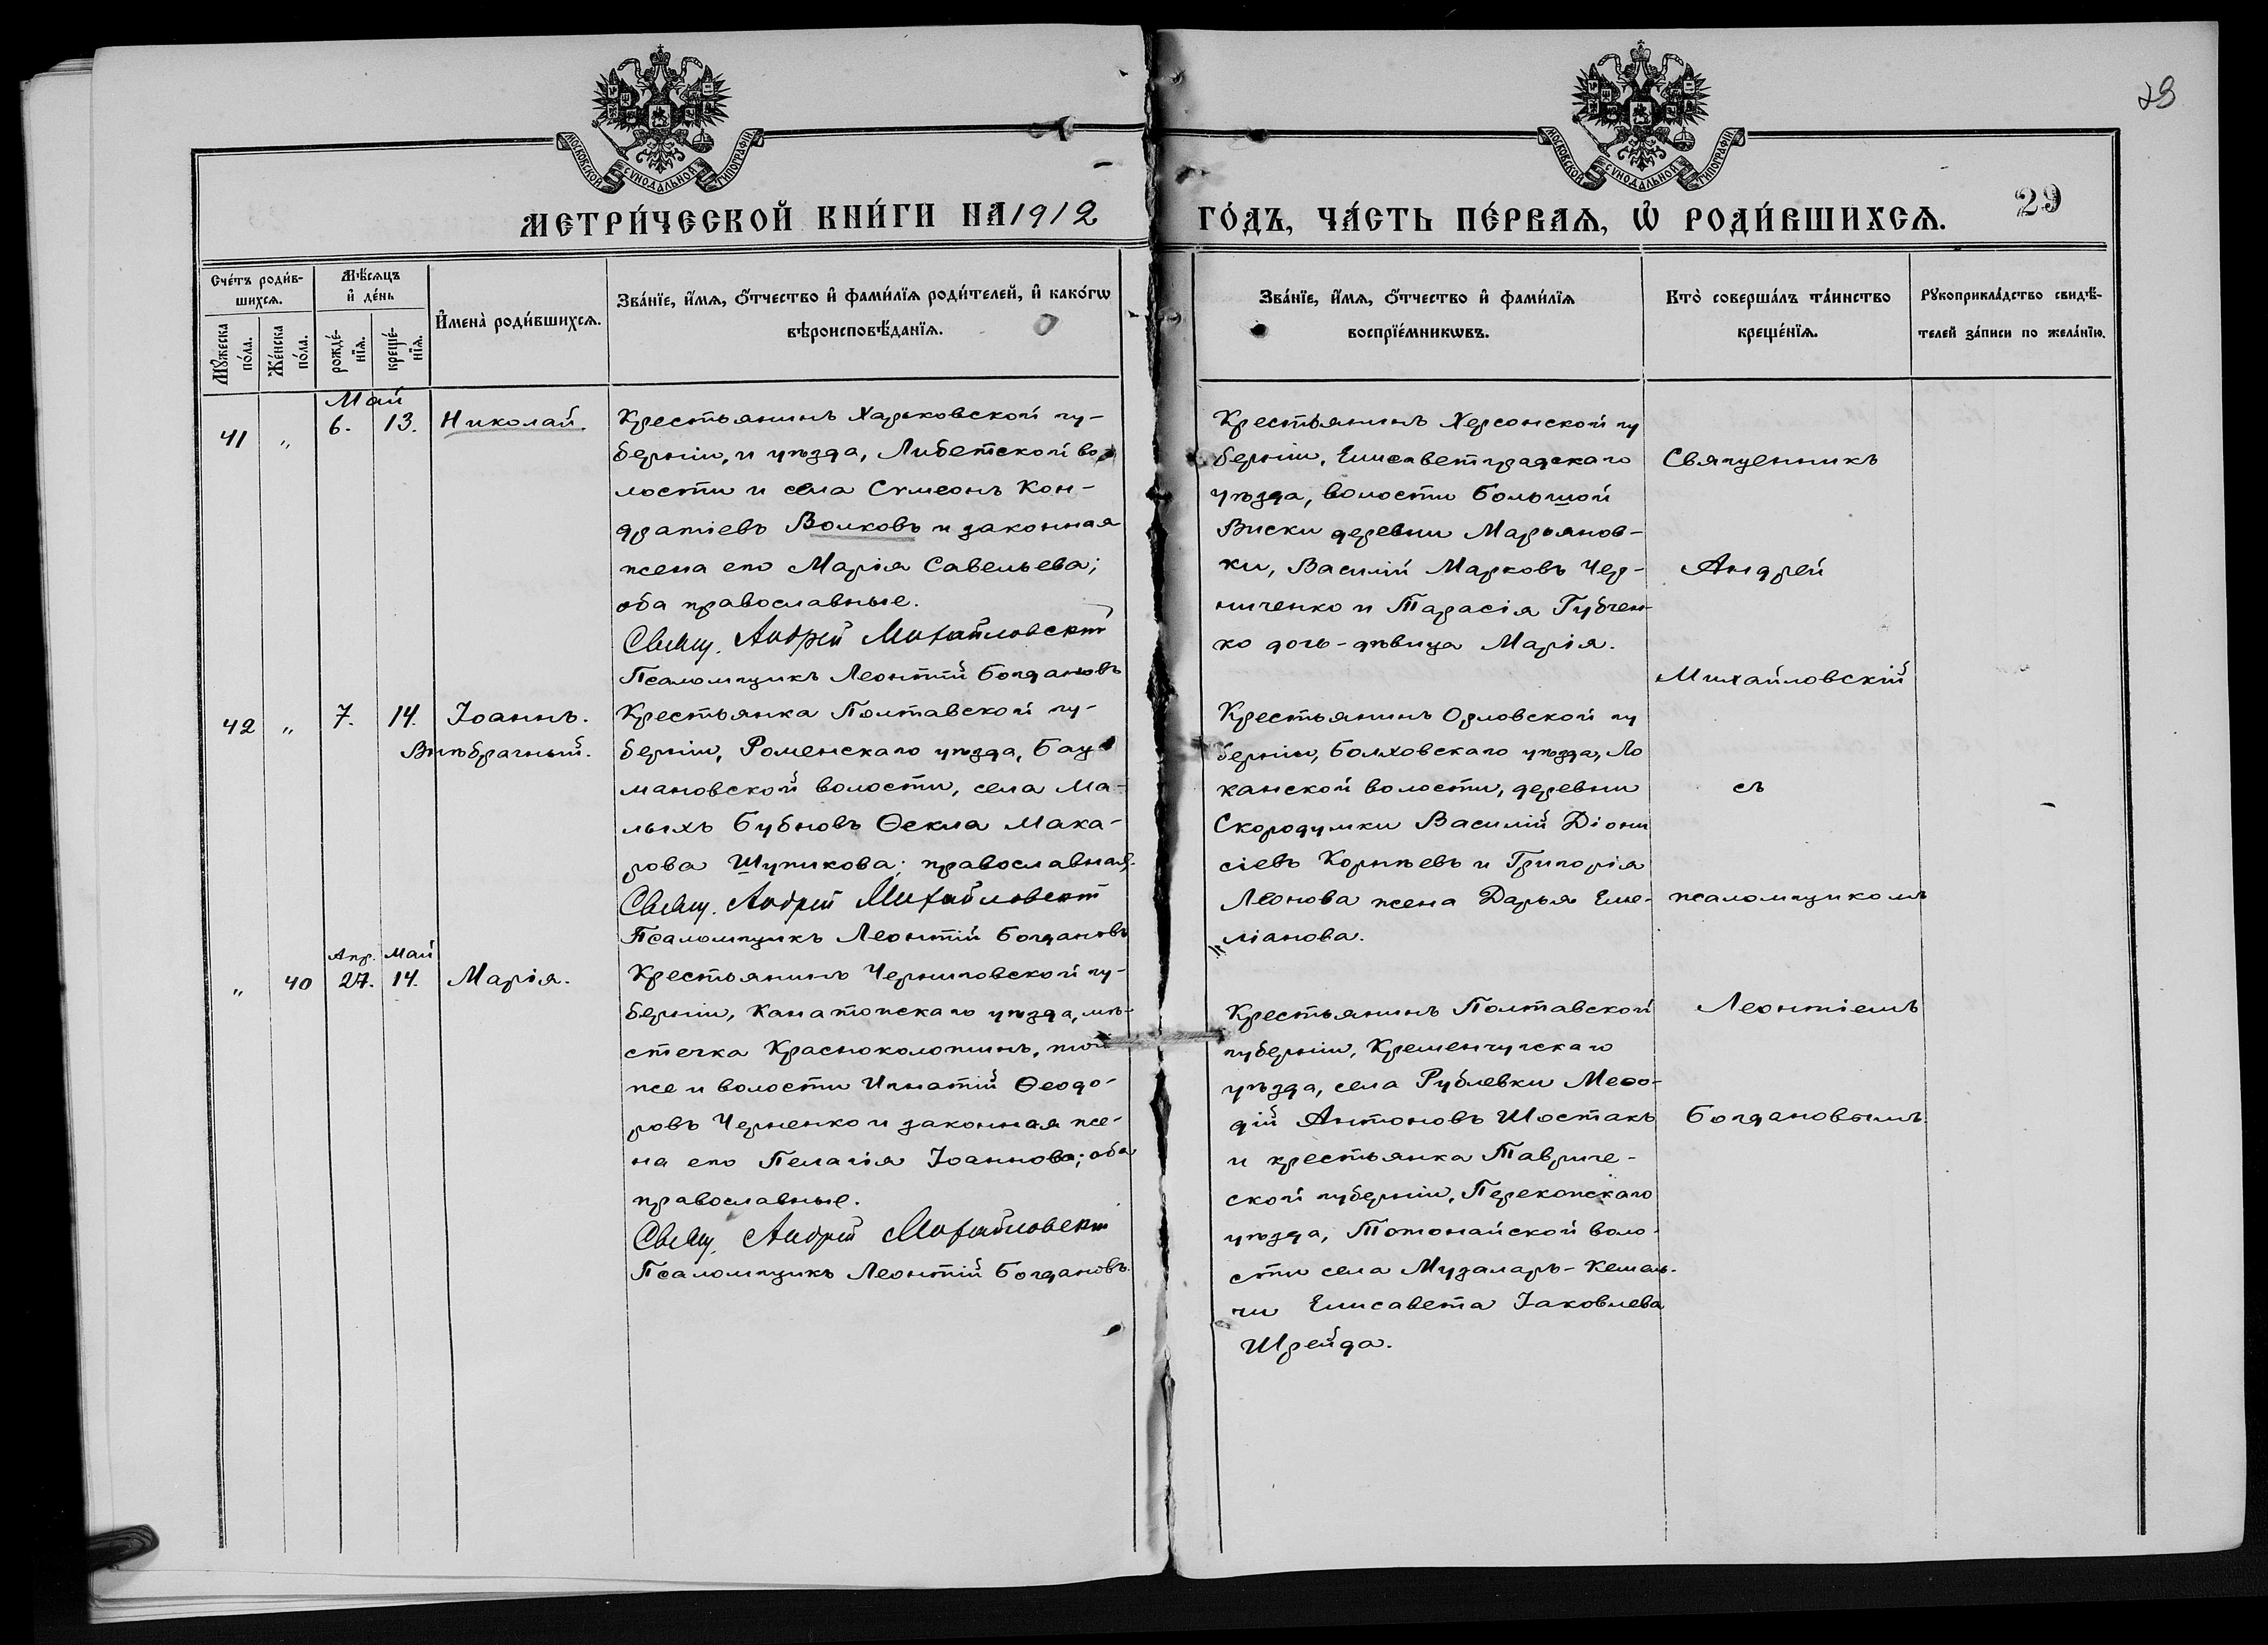 МОСКОВСКОЙ СѴНОДАЛЬНОЙ ТИПОГРАФІИ
МОСКОВСКОЙ СѴНОДАЛЬНОЙ ТИПОГРАФІИ
29
МЕТРИ́ЧЕСКОЙ КНИ́ГИ НА 1912
ГО́ДЪ, ЧА́СТЬ ПЕ́РВАѦ, Ѡ҆ РОДИ́ВШИХСѦ.
29
Сче́тъ роди́в-
шихсѧ.
Мꙋ́жеска
по́ла.
Же́нска
по́ла.
Мѣ́сѧцъ
и҆ де́нь
рожде́-
нїѧ.
креще́-
нїѧ.
И҆мена̀ роди́вшихсѧ.
Зва́нїе, и҆́мѧ, ѻ҆́тчество и҆ фами́лїѧ роди́телей, и҆ како́гѡ
вѣроисповѣ́данїѧ.
Зва́нїе, и҆́мѧ, ѻ҆́тчество и҆ фами́лїѧ
воспрїе́мникѡвъ.
Кто̀ соверша́лъ та́инство
креще́нїѧ.
Рꙋкоприкла́дство свидѣ́-
телей за́писи по жела́нїю.
Май
41 „ 6. 13. Николай.
Крестьянинъ Харьковской гу-
берніи, и уѣзда, Либетской во
лости и села Сѵмеонъ Кон-
дратіевъ Волковъ и законная
жена его Марія Савельева;
оба православные.
Свящ. Андрей Михайловскій
Псаломщикъ Леонтій Богдановъ
Крестьянинъ Херсонской гу
берніи, Елисаветградскаго
уѣзда, волости Большой
Виски деревни Марьянов-
ки, Василій Марковъ Чер-
ниченко и Тарасія Губчен-
ко дочь-дѣвица Марія.
Священникъ
Андрей
Михайловскій
съ
псаломщикомъ
Леонтіемъ
Богдановымъ.
42 „ 7. 14. Іоаннъ.
Внѣбрачный.
Крестьянка Полтавской гу-
берніи, Роменскаго уѣзда, Бац
мановской волости, села Ма-
лыхъ Бубновъ Ѳекла Мака-
рова Шупикова; православная.
Свящ. Андрей Михайловскій
Псаломщикъ Леонтій Богдановъ
Крестьянинъ Орловской гу
берніи, Болховскаго уѣзда, Ло
канской волости, деревни
Скородумки Василій Діони
сіевъ Корнѣевъ и Григорія
Леонова жена Дарья Еме-
ліанова.
Апр. Май
„ 40 27. 14. Марія.
Крестьянинъ Черниговской гу-
берніи, Канатопскаго уѣзда, мѣ-
стечка Красноколопинъ, той
же и волости Игнатій Ѳеодо-
ровъ Черненко и законная же-
на его Пелагія Іоаннова; оба
православные.
Свящ. Андрей Михайловскій
Псаломщикъ Леонтій Богдановъ.
Крестьянинъ Полтавской
губерніи, Кременчугскаго
уѣзда, села Рублевки Меѳо-
дій Антоновъ Шостакъ
и крестьянка Тавриче-
ской губерніи, Перекопскаго
уѣзда, Тотонайской воло-
сти села Музаларъ-Кемаль-
чи Елисавета Іаковлева
Шрейда.